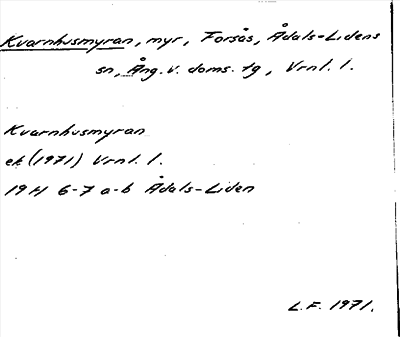 Kvarnhusmyran, myr, Forsås, Ådals-Lidens
sn, Ång. v. doms. tg, Vrnl. l.
Kvarnhusmyran
ek (1971) Vrnl. l.
19H 6-7 a-b Ådals-Liden
L.F. 1971.